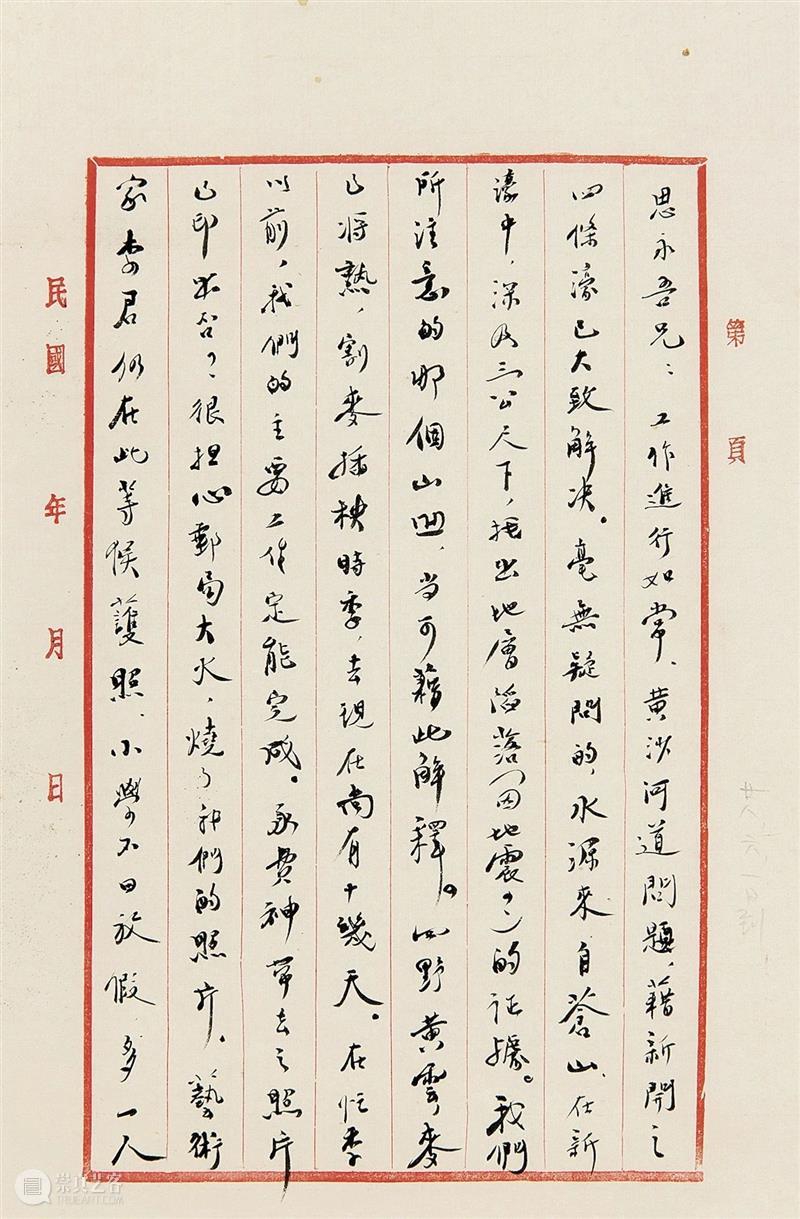 第 頁
思永吾兄：工作進行如常、黄沙河道問題，藉新開之
四條濠已大致解决。毫無疑問的，水源來自蒼山、在新
濠中，深及三公尺下，掘出地層陷落（因地震？）的証據。我們
所注意的那個山凹，当可藉此解釋。四野黄雲麥
已将熟，割麥插秧時季，去現在尚有十幾天。在忙季
以前，我們的主要工作定能完成。承費神帶去之照片
已印出否？很担心郵局大火，燒了我們的照片。藝術
家李君仍在此等候護照、小學不日放假，多一人
民國 年 月 日
廿八 六 一日到
崇真艺客
TRUEART.COM